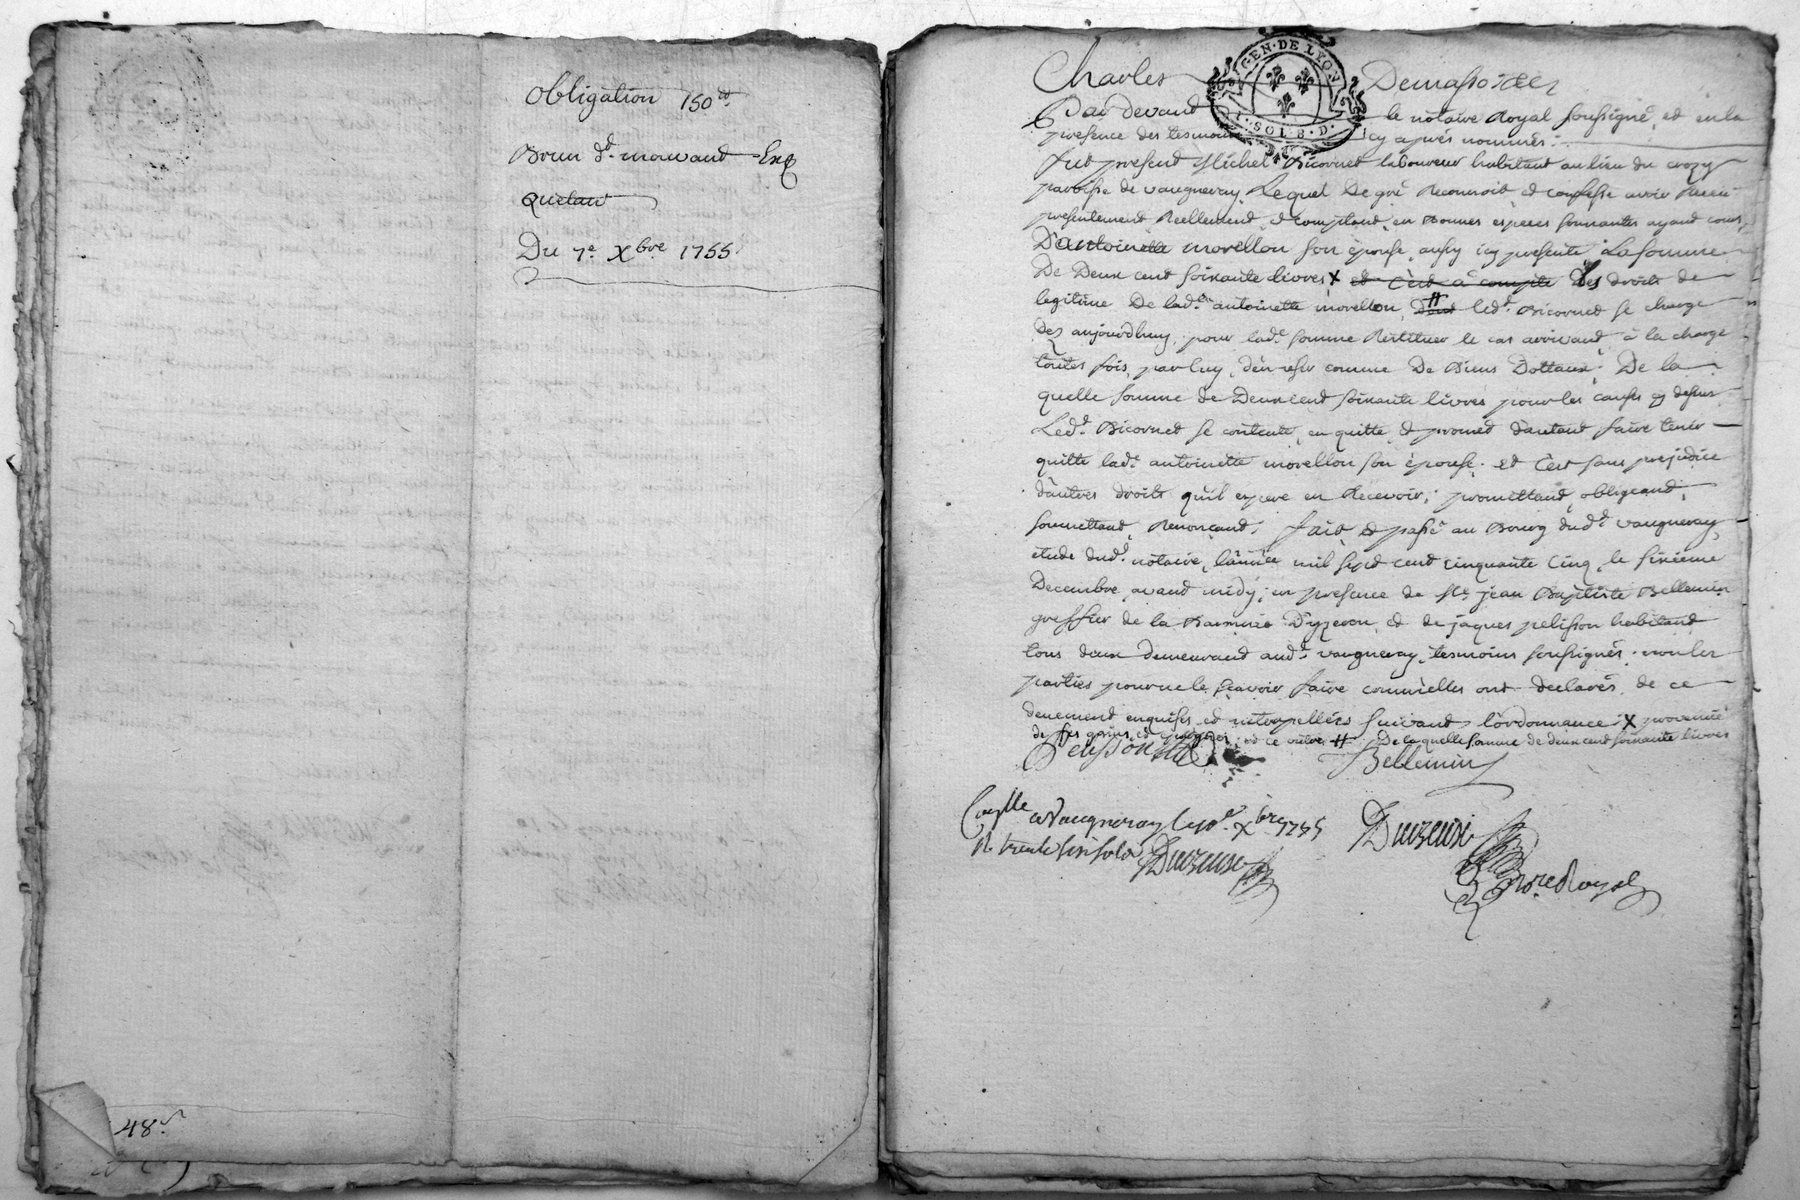 Obligation 150
Brun
Du 7e. Xbre. 1755
48
GEN·DE LYON
SOL·8·D·
Charles
Par devant le notaire Royal soussigné, et en la
presence des tesmoins icy aprés nommés:
fut present Michel Bicornet laboureur habitant au lieu du crozy
paroisse de vaugneray, Lequel De gré Reconnoit et confesse avoir Receu
presentement Reellement, et comptant, en Bonnes especes sonnantes ayant cours,
D'antoinette morellon son épouse, aussy icy presente, La somme
De Deux cent soixante livres X et C'est à compte Des droits de
legitime De lade. antoinette morellon, dont # led. Bicornet se charge
Dez aujourdhuy, pour lade. somme Restituer le cas arrivant, à la charge
toutes fois, par luy, d'en user comme De Biens Dottaux; De la
quelle somme de Deux cent soixante livres pour les causes cy dessus
Led. Bicornet se contente, en quitte, et promet d'autant faire tenir
quitte lade. antoinette morellon son épouse. et C'est sans prejudice
d'autres droits qu'il espere en Recevoir; promettant, obligeant,
soumettant, Renonçant, fait et passé au Bourg dud. vaugneray,
étude dud. notaire, l'année mil sept cent cinquante cinq, le sixieme
Decembre, avant midy; en presence de sr. jean Baptiste Bellemin
greffier de la Baronnie D'yzeron, et de jaques pelisson habitant
tous deux demeurant aud. vaugneray, tesmoins soussignés, non les
parties pour ne le sçavoir faire comm'elles ont declarés, de ce
deuement enquises et interpellées suivant l'ordonnance X provenüe
de ses gains et et ce outre # De laquelle somme de deux cent soixante livres
Pelisson Bellemin
à Vaugneray le Xbre 1755
R. trente six sols Duizeux
Duizeux
Nore Royal